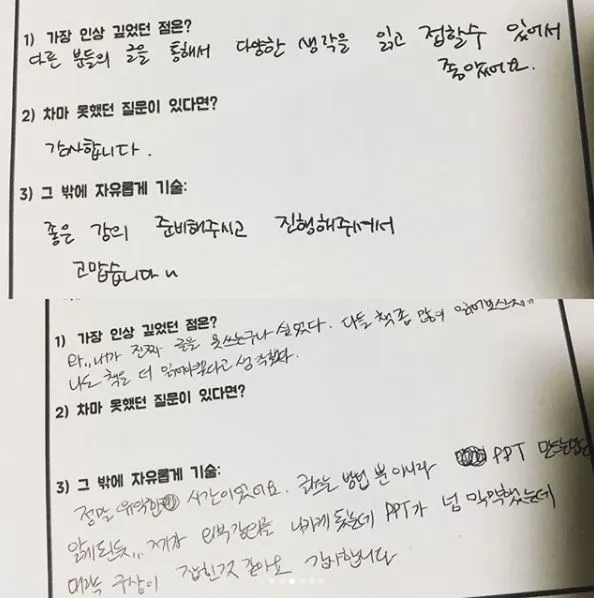 1) 가장 인상 깊었던 점은?
다른 분들의 글을 통해서 다양한 생각을 읽고 접할수 있어서
좋았어요.
2) 차마 못했던 질문이 있다면?
감사합니다.
3) 그 밖에 자유롭게 기술:
좋은 강의 준비해주시고 진행해주셔서
고맙습니다
1) 가장 인상 깊었던 점은?
와,, 내가 진짜 글을 못쓰는구나 싶었다. 다들 책 좀 많이
나도 책을 더 읽어야겠다고 생각했다.
2) 차마 못했던 질문이 있다면?
3) 그 밖에 자유롭게 기술:
정말 유익한 시간이었어요. 글쓰는 방법 뿐 아니라 PPT 만드는
알게된듯,,, 제가 외부강의를 나가게 됐는데 PPT가 넘 막막했는데
대략 구상이 잡힌것 같아요 감사합니다